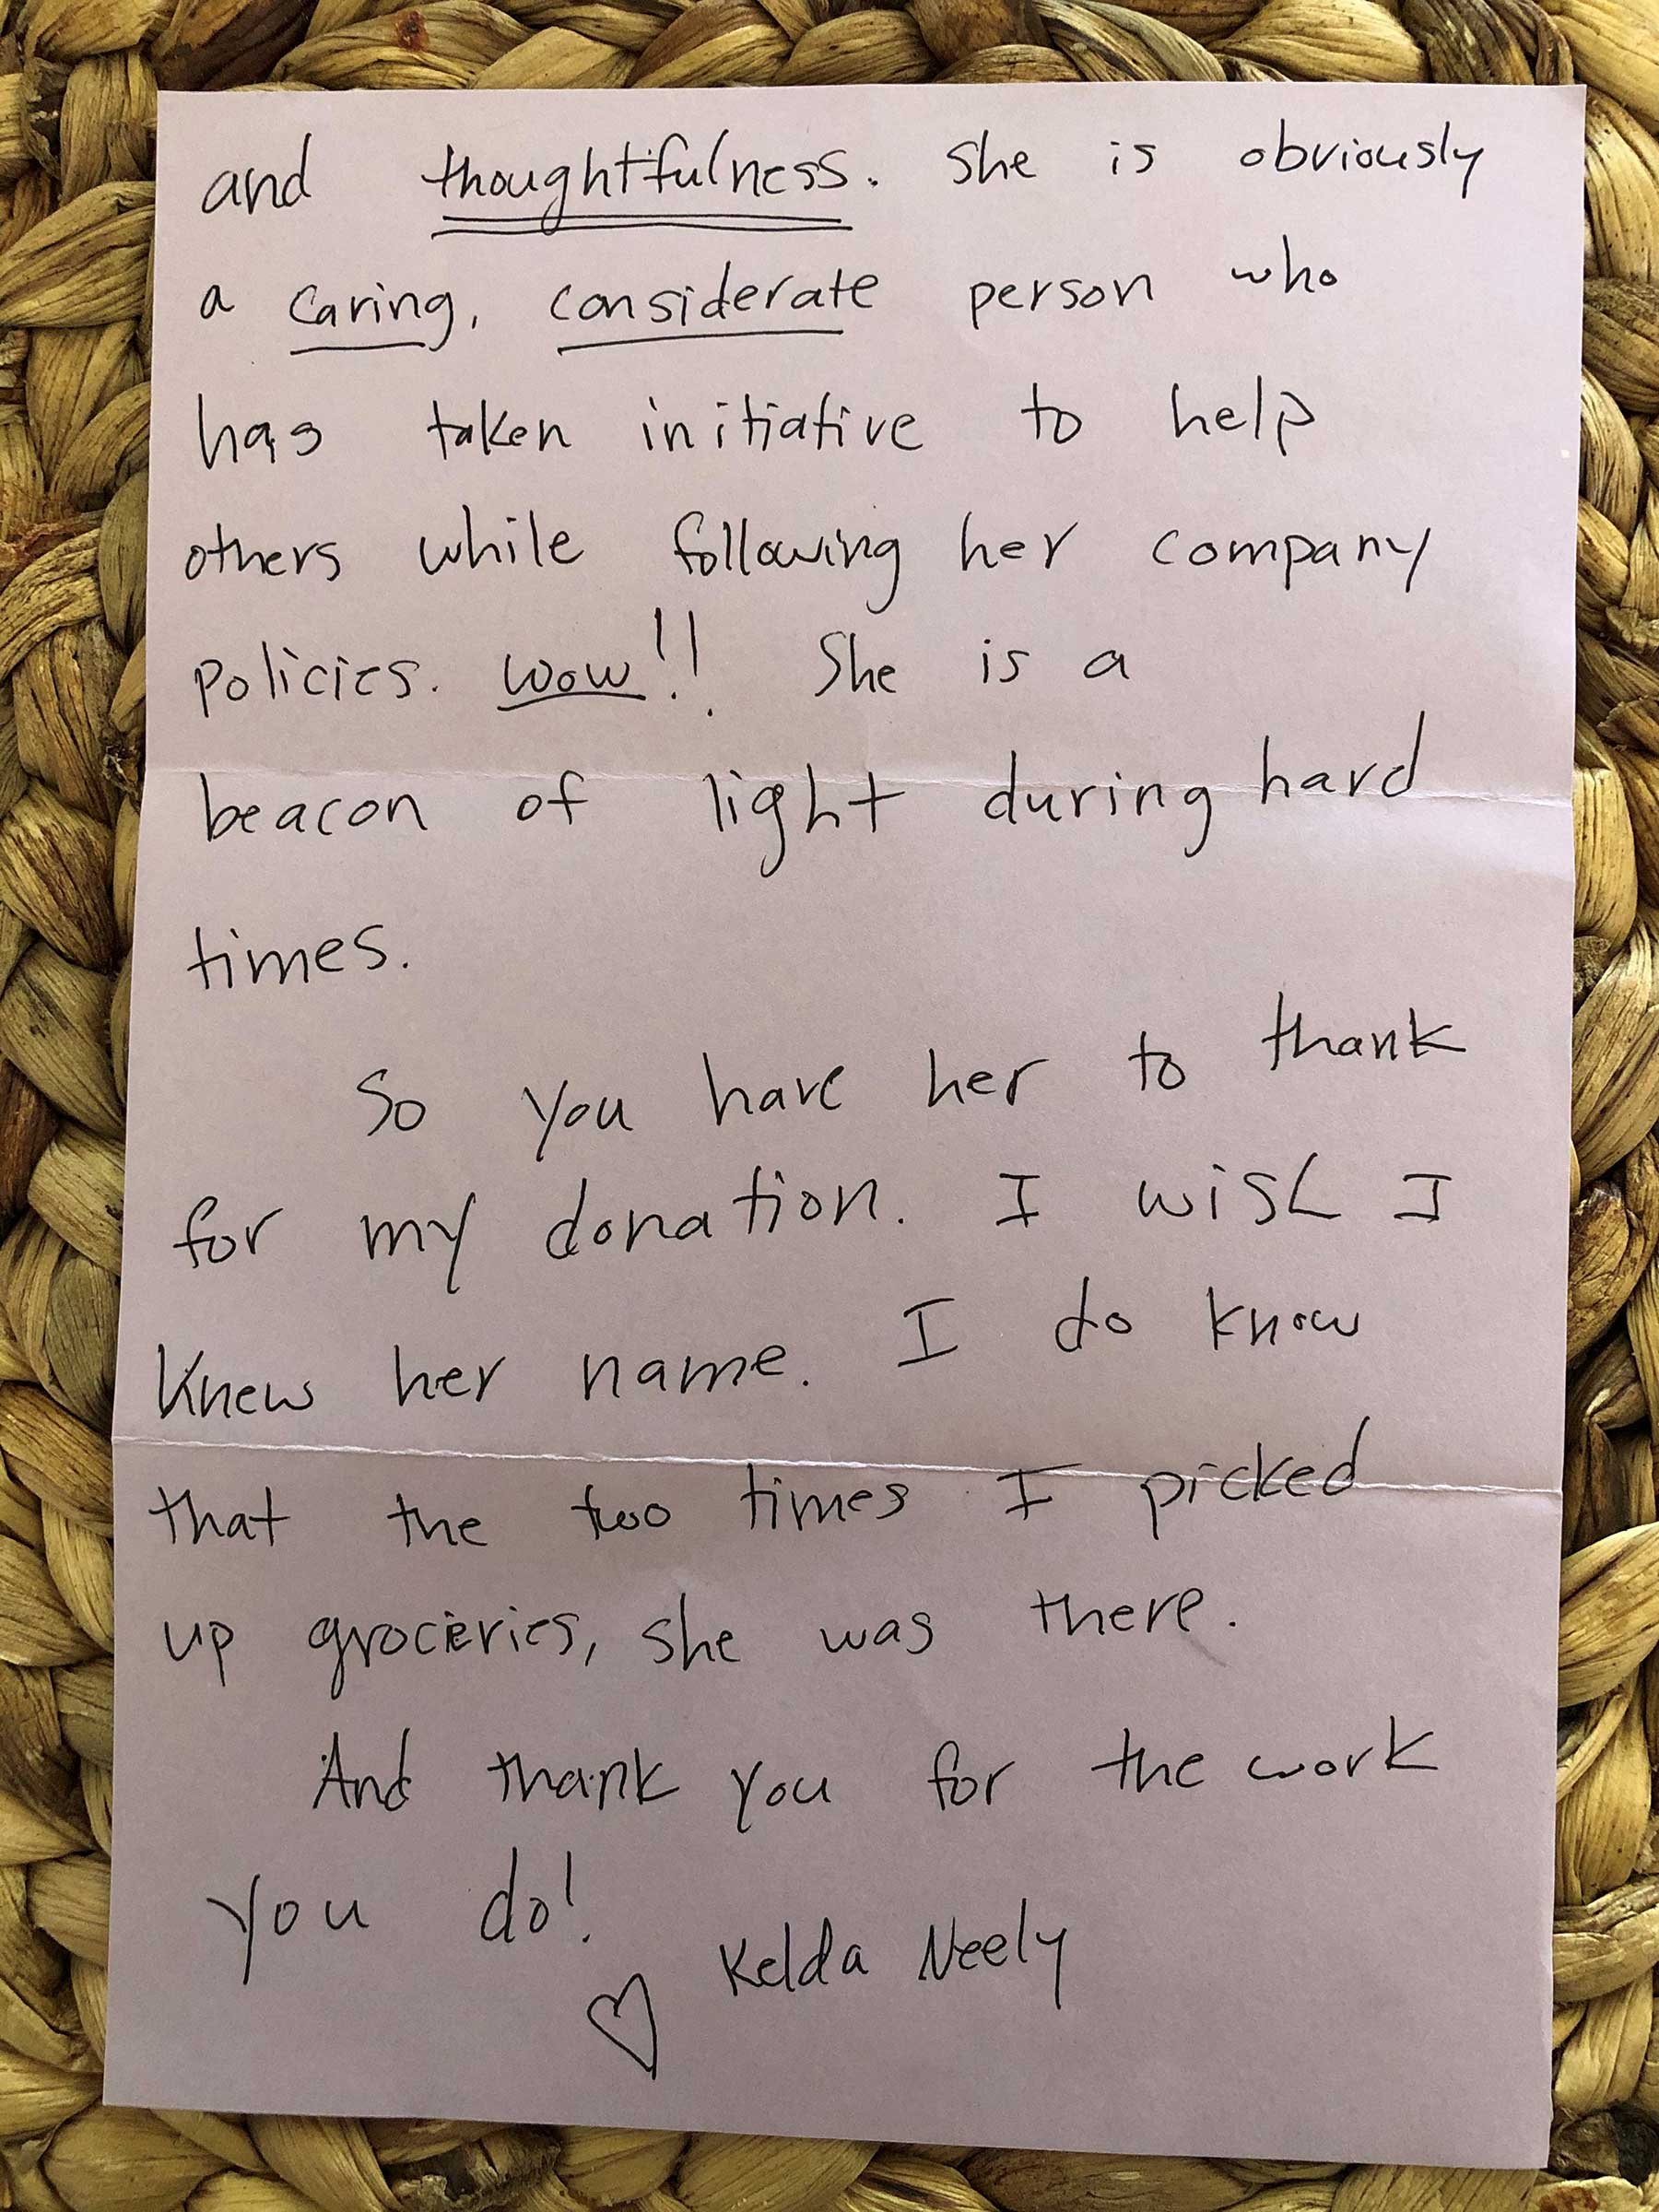 and thoughtfulness. She is obviously
a caring, considerate person who
has taken initiative to help
others while following her company
policies. Wow!! She is a
beacon of light during hard
times.
So you have her to thank
for my donation. I wish I
knew her name. I do know
that the two times I picked
up groceries, she was there.
And thank you for the work
you do!
♡ Kelda Neely